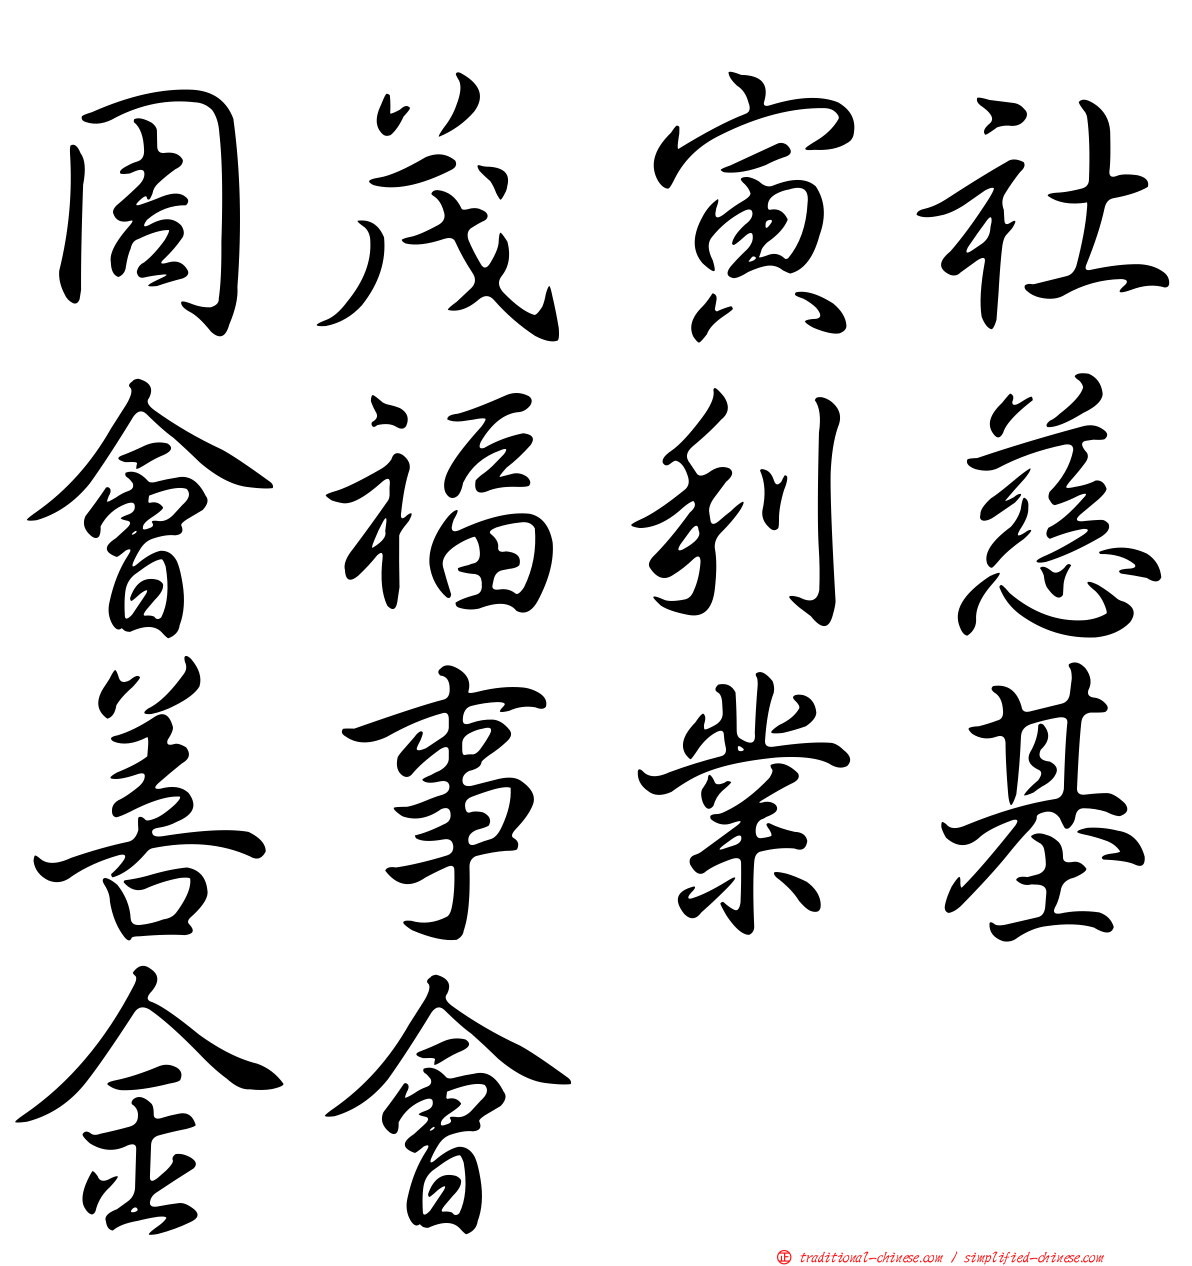 周茂寅社
會福利慈
善事業基
金會
正 traditional-chinese.com / simplified-chinese.com